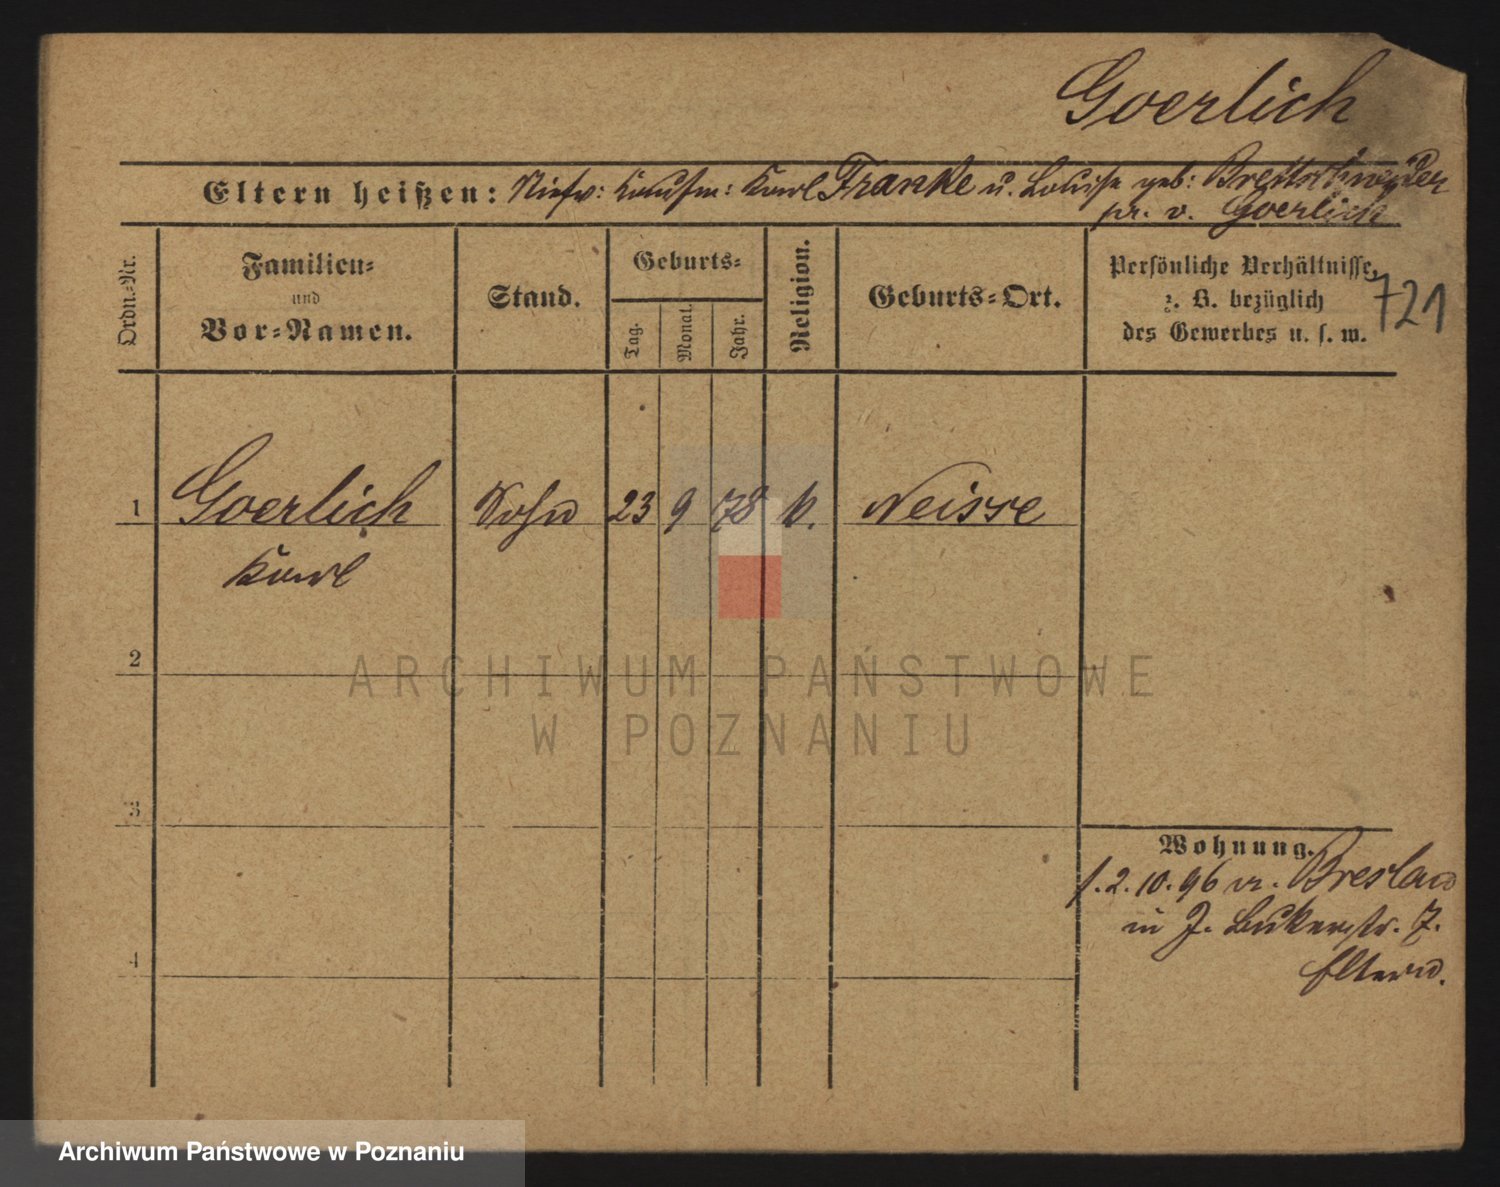 Goerlich
Eltern heißen: Stiefv: Kaufm: Karl Franke u. Louise geb: Brettschneider
v. Goerlich
Ordn.-Nr.
Familien-
und
Vor-Namen.
Stand.
Geburts-
Tag.
Monat.
Jahr.
Religion.
Geburts-Ort.
Persönliche Verhältnisse,
z. B. bezüglich
des Gewerbes u. s. w.
721
1 Goerlich Sohn 23 9 78 k. Neisse
Karl
2
3
4
Wohnung.
f. 2.10.96 v. Breslau
in J. Bukerstr. 7.
Eltern.
ARCHIWUM PAŃSTWOWE
W POZNANIU
Archiwum Państwowe w Poznaniu